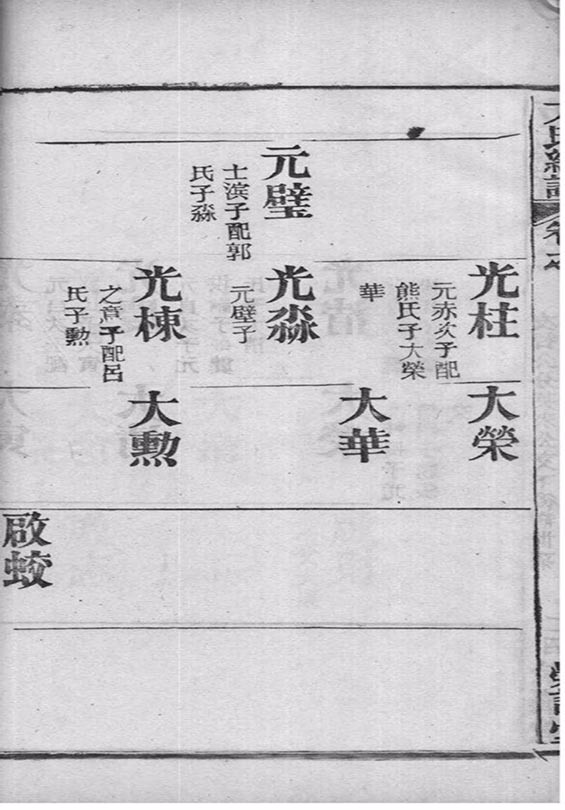 元璧
士滨子配郭
氏子淼
光柱
元亦次子配
熊氏子大榮
華
光淼
元璧子
光棟
之章子配呂
氏子勲
大榮
大華
大勲
啟蛟